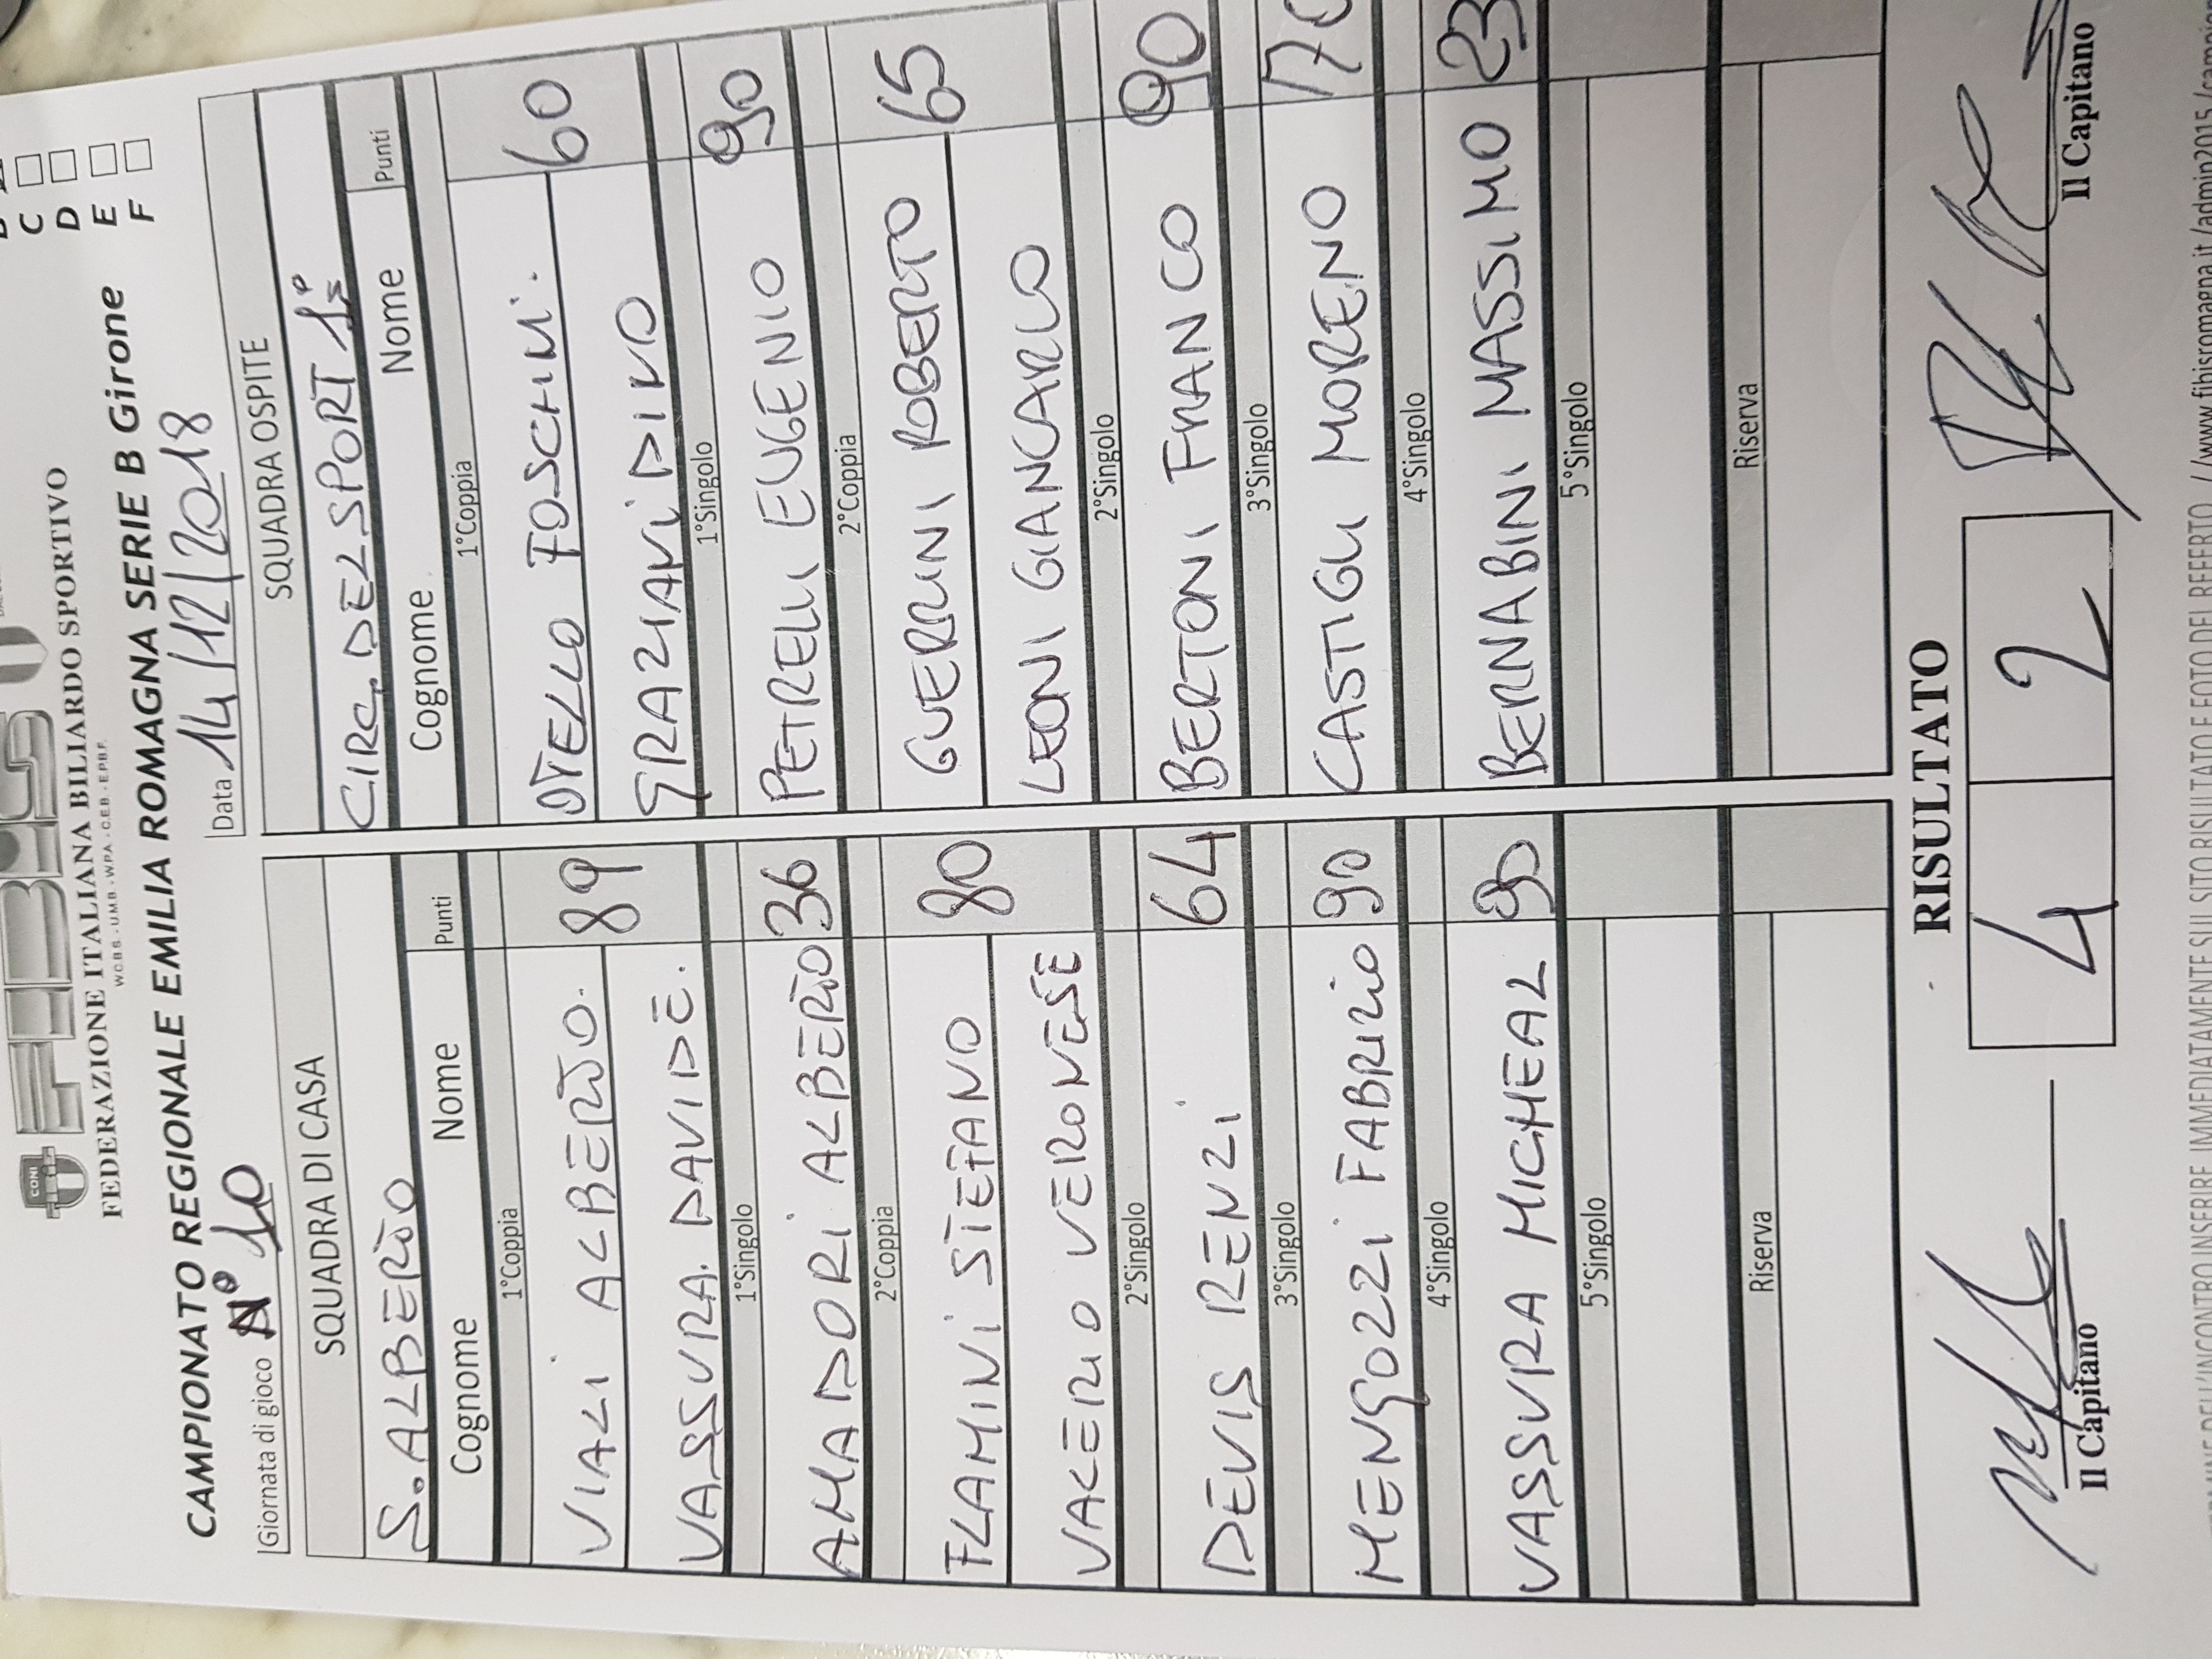 FIBiS
CONI
FEDERAZIONE ITALIANA BILIARDO SPORTIVO
W.C.B.S. - U.M.B. - W.P.A. - C.E.B. - E.P.B.F.
C
D
E
F
CAMPIONATO REGIONALE EMILIA ROMAGNA SERIE B Girone
Giornata di gioco N° 10
Data 14/12/2018
SQUADRA DI CASA
SQUADRA OSPITE
S. ALBERTO
CIRC. DELSPORT
Cognome Nome Punti
Cognome Nome Punti
1°Coppia
1°Coppia
VIALI ALBERTO. 89
OTELLO FOSCHINI. 60
VASSURA. DAVIDE.
GRAZIANI DINO
1°Singolo
1°Singolo
AMADORI ALBERTO 36
PETRELLI EUGENIO 90
2°Coppia
2°Coppia
FLAMINI STEFANO 80
GUERRINI ROBERTO 65
VALERIO VERONESE
LEONI GIANCARLO
2°Singolo
2°Singolo
DEVIS RENZI 64
BERTONI FRANCO 90
3°Singolo
3°Singolo
MENGOZZI FABRIZIO 90
CASTIGLI MORENO
4°Singolo
4°Singolo
VASSURA MICHEAL 90
BERNABINI MASSIMO 23
5°Singolo
5°Singolo
Riserva
Riserva
RISULTATO
4 2
Il Capitano
Il Capitano
DELL'INCONTRO INSERIRE IMMEDIATAMENTE SUL SITO RISULTATO E FOTO DEL REFERTO //www.fibisromagna.it/admin2015/